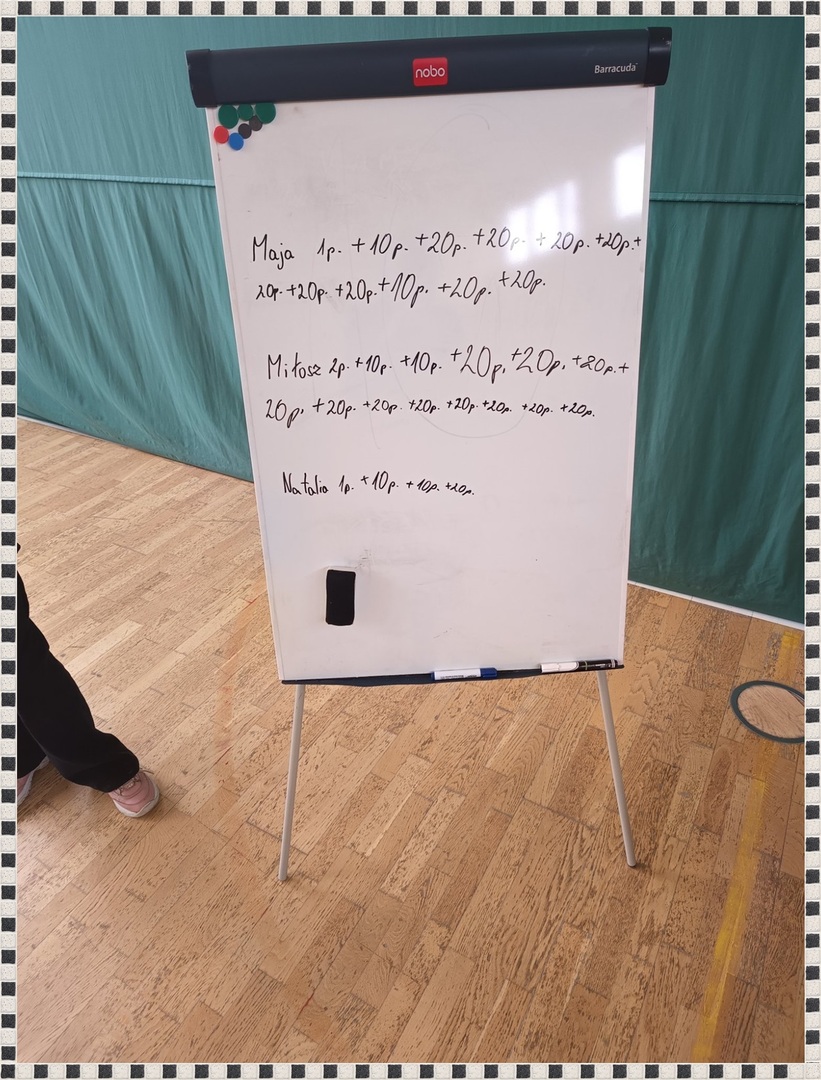 nobo
Barracuda
Maja 1p. +10p. +20p. +20p. + 20p. +20p.+
20p. +20p. +20p.+10p. +20p. +20p.
Miłosz 2p. +10p. +10p. +20p. +20p. +20p.+
20p. +20p. +20p. +20p. +20p. +20p. +20p. +20p.
Natalia 1p. +10p. +10p. +20p.